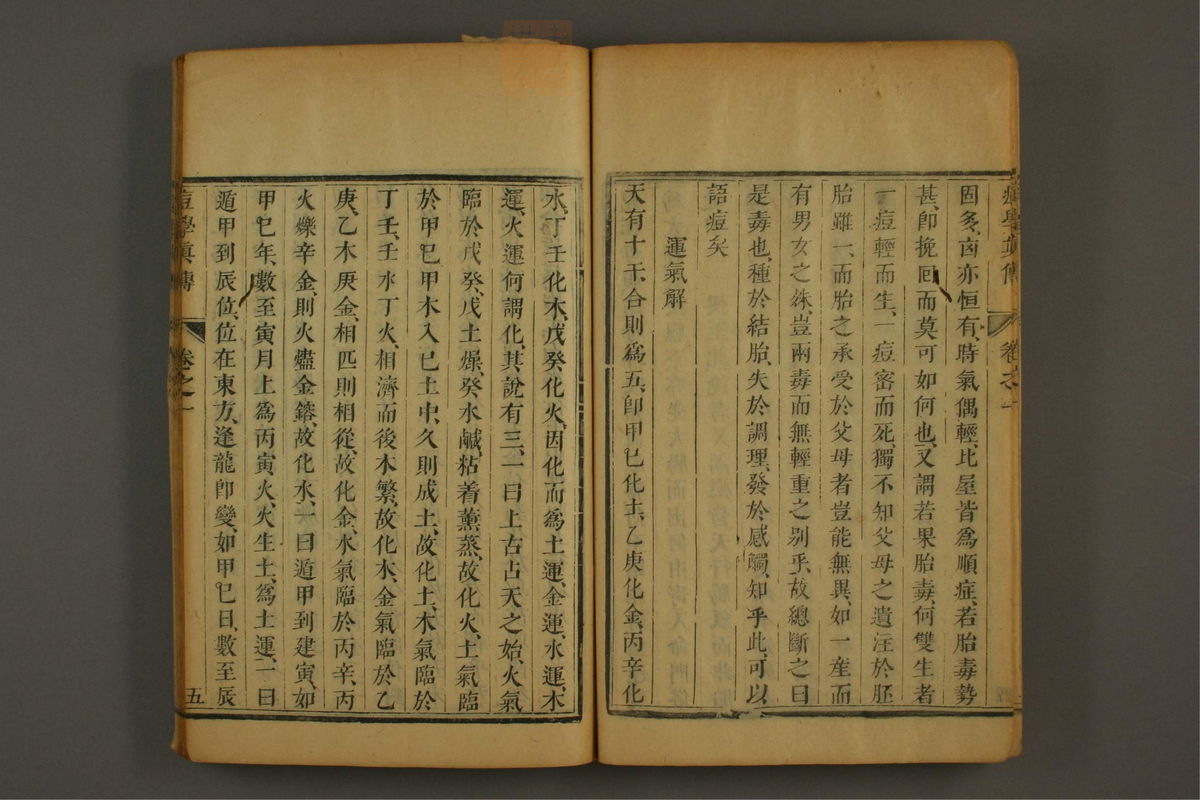 痘學眞傳 卷之一
固多、卤亦恒有、時氣偶輕、比屋皆爲順症、若胎毒勢
甚、卽挽回而莫可如何也、又謂若果胎毒、何雙生者
一痘輕而生、一痘密而死、獨不知父母之遺注於胚
胎雖一、而胎之承受於父母者豈能無異、如一産而
有男女之殊、豈兩毒而無輕重之别乎、故總斷之曰
是毒也、種於結胎、失於調理、發於感觸、知乎此、可以
語痘矣
運氣解
天有十干、合則爲五、卽甲巳化土、乙庚化金、丙辛化
水、丁壬化木、戊癸化火、因化而爲土運、金運、水運、木
運、火運、何謂化、其說有三、一曰上古占天之始、火氣
臨於戊癸、戊土燥、癸水鹹、粘着薰蒸、故化火、土氣臨
於甲巳、甲木入巳土中、久則成土、故化土、木氣臨於
丁壬、壬水丁火、相濟而後木繁、故化木、金氣臨於乙
庚、乙木庚金、相匹則相從、故化金、水氣臨於丙辛、丙
火爍辛金、則火燼金鎔、故化水、一曰遁甲到建寅、如
甲巳年、數至寅月上爲丙寅、火、火生土、爲土運、一曰
遁甲到辰位、位在東方、逢龍卽變、如甲巳日、數至辰
痘學眞傳 卷之一 五